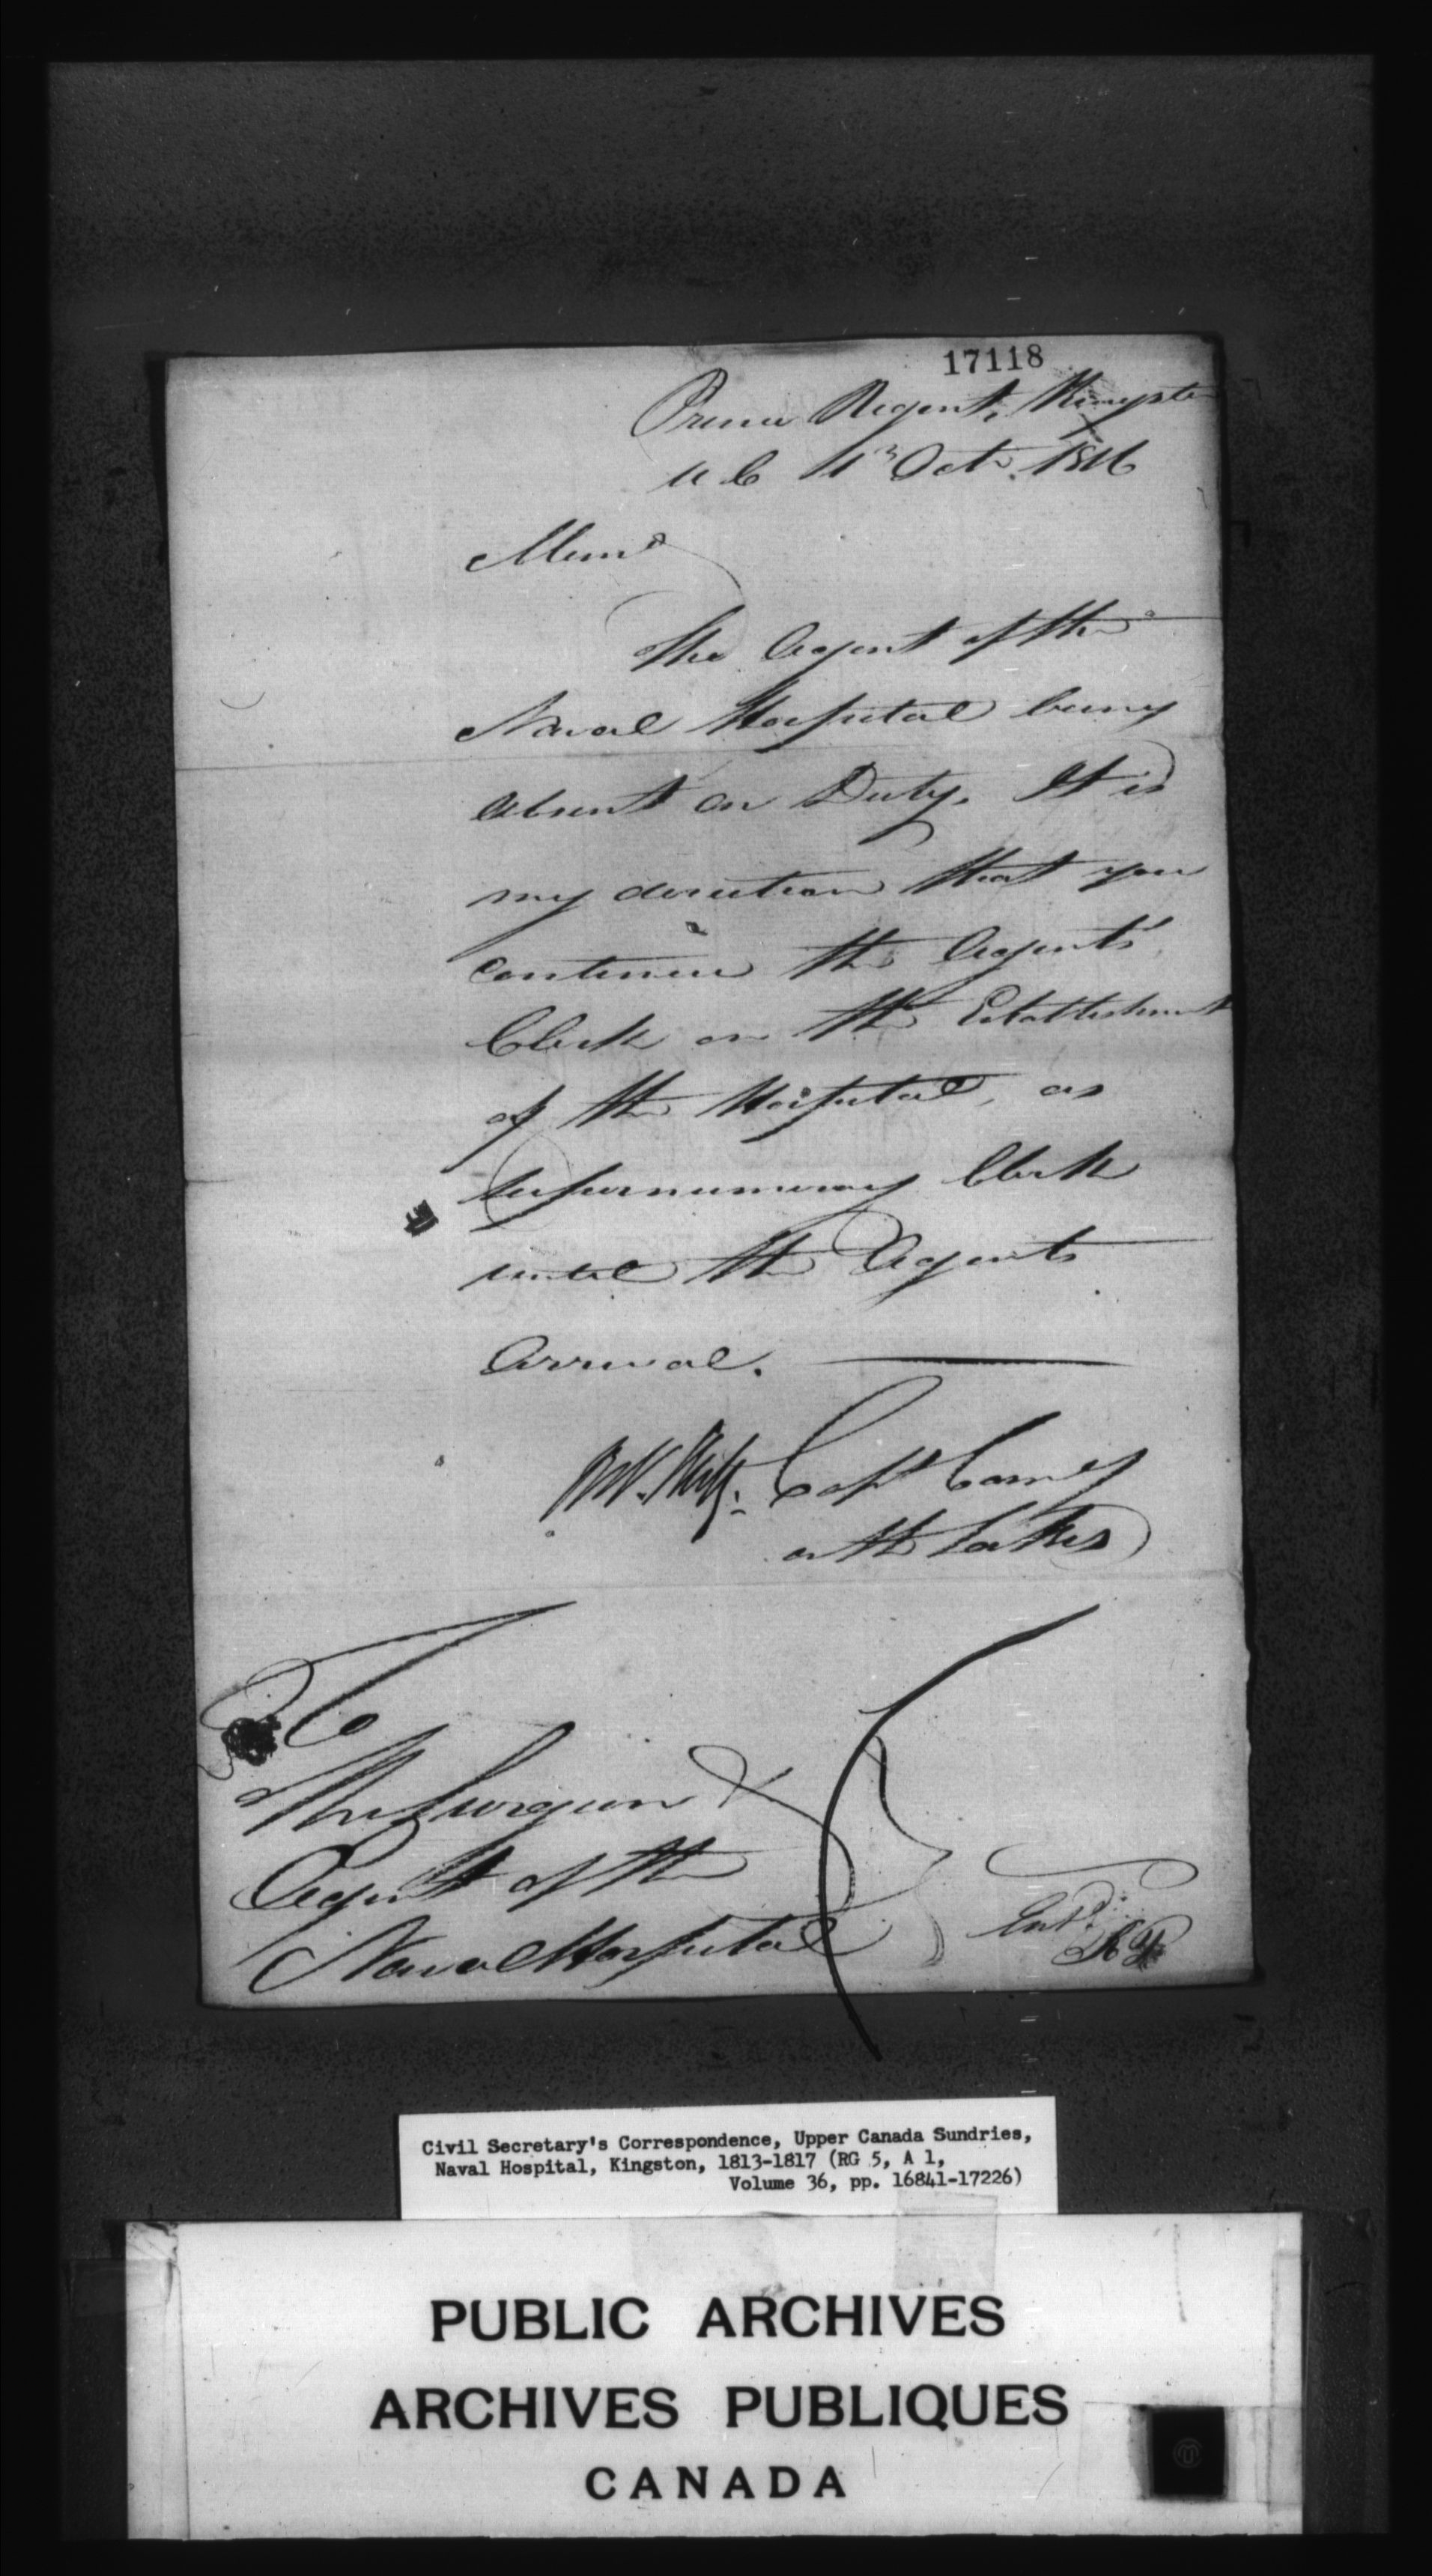 17118
Prince Regent, Kingston
U C 1st Octr. 1816
Memo
The Agent of the
Naval Hospital being
absent on Duty. It is
my direction that you
continue the Agents
Clerk on the Establishment
of the Hospital, as
Supernumerary Clerk
until the Agents
Arrival.
Capt Comg
on the Lakes
To
The Surgeon &
Agent of the
Naval Hospital
Entd.
Civil Secretary's Correspondence, Upper Canada Sundries,
Naval Hospital, Kingston, 1813-1817 (RG 5, A 1,
Volume 36, pp. 16841-17226)
PUBLIC ARCHIVES
ARCHIVES PUBLIQUES
CANADA